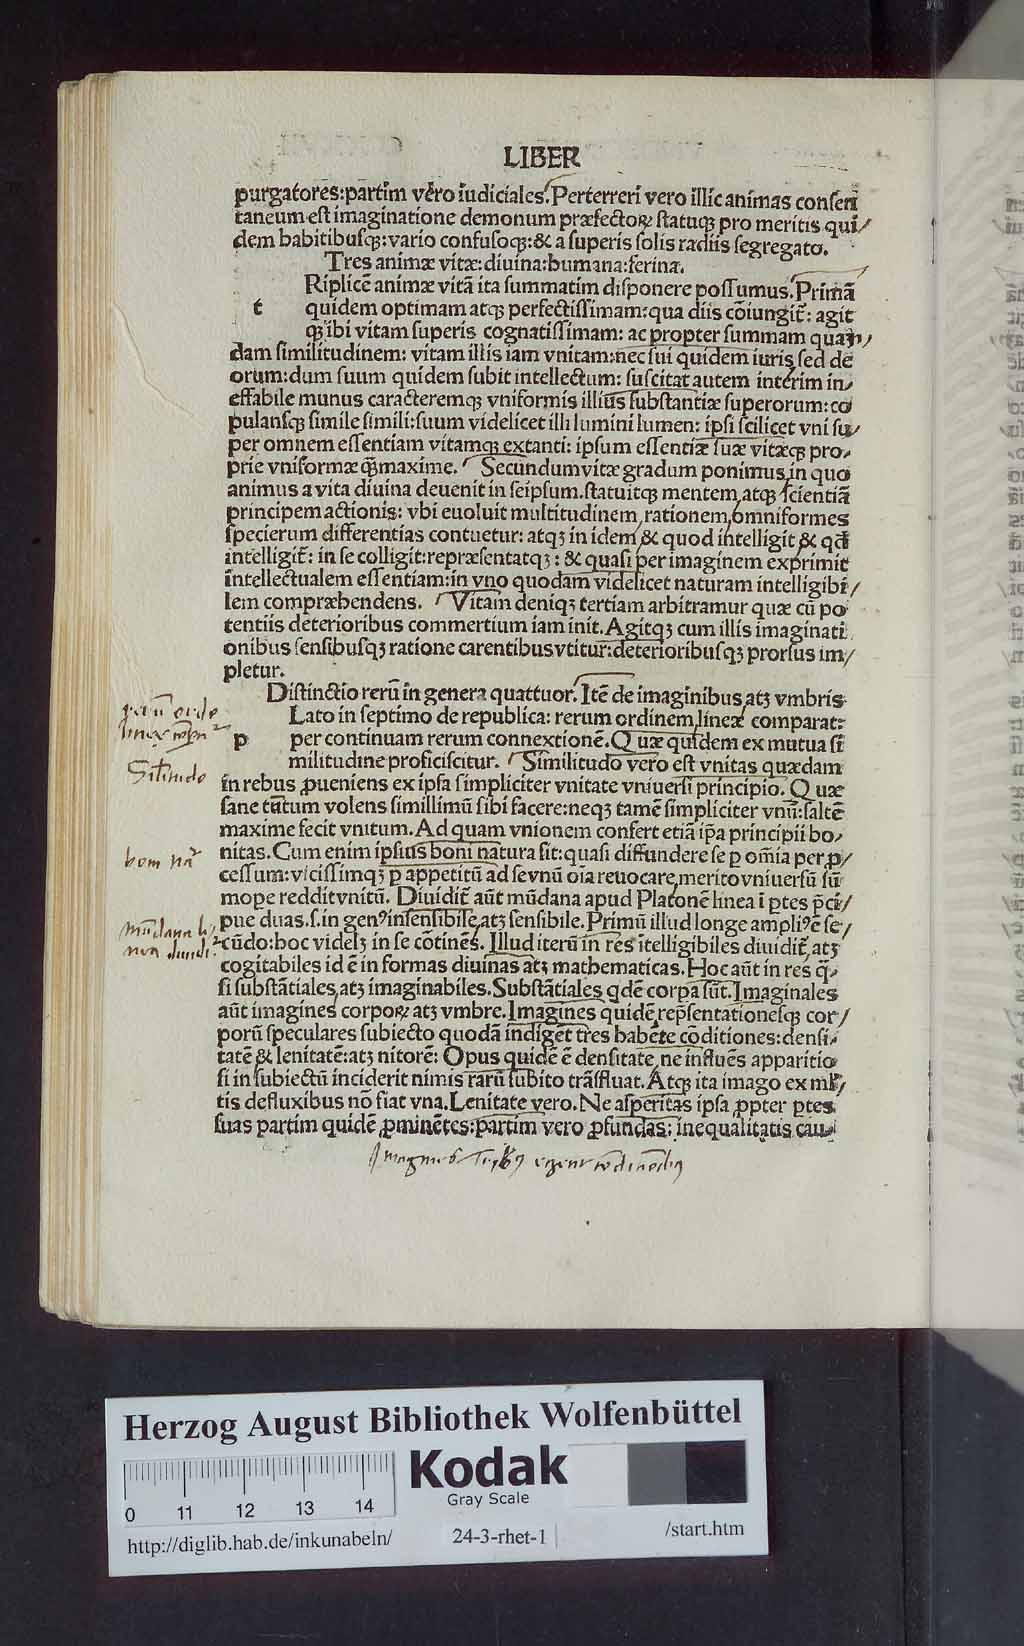 LIBER
purgatores: partim vero iudiciales. Perterreri vero illic animas conseñ
taneum est imaginatione demonum præfectoꝝ statuqꝫ pro meritis qui/
dem habitibusqꝫ: vario confusoqꝫ: & a superis solis radiis segregato.
Tres animæ vitæ: diuina: humana: ferina.
Riplicē animæ vitā ita summatim disponere possumus. Primā
t quidem optimam atqꝫ perfectissimam: qua diis cōiungit᷑: agit
qꝫ ibi vitam superis cognatissimam: ac propter summam quan/
dam similitudinem: vitam illis iam vnitam: nec sui quidem iuris sed de
orum: dum suum quidem subit intellectum: suscitat autem interim in/
effabile munus caracteremqꝫ vniformis illius substantiæ superorum: co
pulansqꝫ simile simili: suum videlicet illi lumini lumen: ipsi scilicet vni su/
per omnem essentiam vitamqꝫ extanti: ipsum essentiæ suæ vitæqꝫ pro/
prie vniformæ qꝫ̄maxime. Secundum vitæ gradum ponimus in quo
animus a vita diuina deuenit in seipsum. statuitqꝫ mentem atqꝫ scientiā
principem actionis: vbi euoluit multitudinem, rationem, omniformes
specierum differentias contuetur: atqꝫ in idem & quod intelligit & qđ
intelligit᷑: in se colligit: repræsentatqꝫ: & quasi per imaginem exprimit
intellectualem essentiam: in vno quodam videlicet naturam intelligibi/
lem compræhendens. Vitam deniqꝫ tertiam arbitramur quæ cū po
tentiis deterioribus commertium iam init. Agitqꝫ cum illis imaginati
onibus sensibusqꝫ ratione carentibus vtitur: deterioribusqꝫ prorsus im/
pletur.
Distinctio rerū in genera quattuor. Itē de imaginibus atꝫ vmbris
Lato in septimo de republica: rerum ordinem, lineæ comparat:
p per continuam rerum connextionē. Quæ quidem ex mutua si
militudine proficiscitur. Similitudo vero est vnitas quædam
in rebus ꝓueniens ex ipsa simpliciter vnitate vniuersi principio. Quæ
sane tantum volens simillimū sibi facere: neqꝫ tamē simpliciter vnū: saltē
maxime fecit vnitum. Ad quam vnionem confert etiā ip̄a principii bo/
nitas. Cum enim ipsius boni natura sit: quasi diffundere se p om̄ia per ꝓ/
cessum: vicissimqꝫ p appetitū ad se vnū oīa reuocare, merito vniuersū sū
mope reddit vnitū. Diuidit᷑ aūt mūdana apud Platonē linea ī ꝑtes p̄ci/
pue duas. s. in genꝰ insensibile, atꝫ sensibile. Primū illud longe ampliꝰ ē se/
cūdo: hoc videlꝫ in se cōtinēs. Illud iterū in res ītelligibiles diuidit᷑, atꝫ
cogitabiles id ē in formas diuinas atꝫ mathematicas. Hoc aūt in res q̄/
si substātiales, atꝫ imaginabiles. Substātiales qdē corpa sūt. Imaginales
aūt imagines corpoꝝ atꝫ vmbre. Imagines quidē rep̄sentationesqꝫ cor/
porū speculares subiecto quodā indiget tres habēte cōditiones: densi/
tatē & lenitatē: atꝫ nitorē: Opus quidē ē densitate, ne influēs apparitio
si in subiectū inciderit nimis rarū subito trāsfluat. Atqꝫ ita imago ex ml̄/
tis defluxibus nō fiat vna. Lenitate vero. Ne asperitas ipsa ꝓpter ꝑtes
suas partim quidē ꝓminētes: partim vero ꝓfundas: inequalitatis cau/
rerū ordo
Silitudo
boni na
mūdana li
nea diuidi
Herzog August Bibliothek Wolfenbüttel
0 11 12 13 14
Kodak
Gray Scale
http://diglib.hab.de/inkunabeln/ 24-3-rhet-1 /start.htm